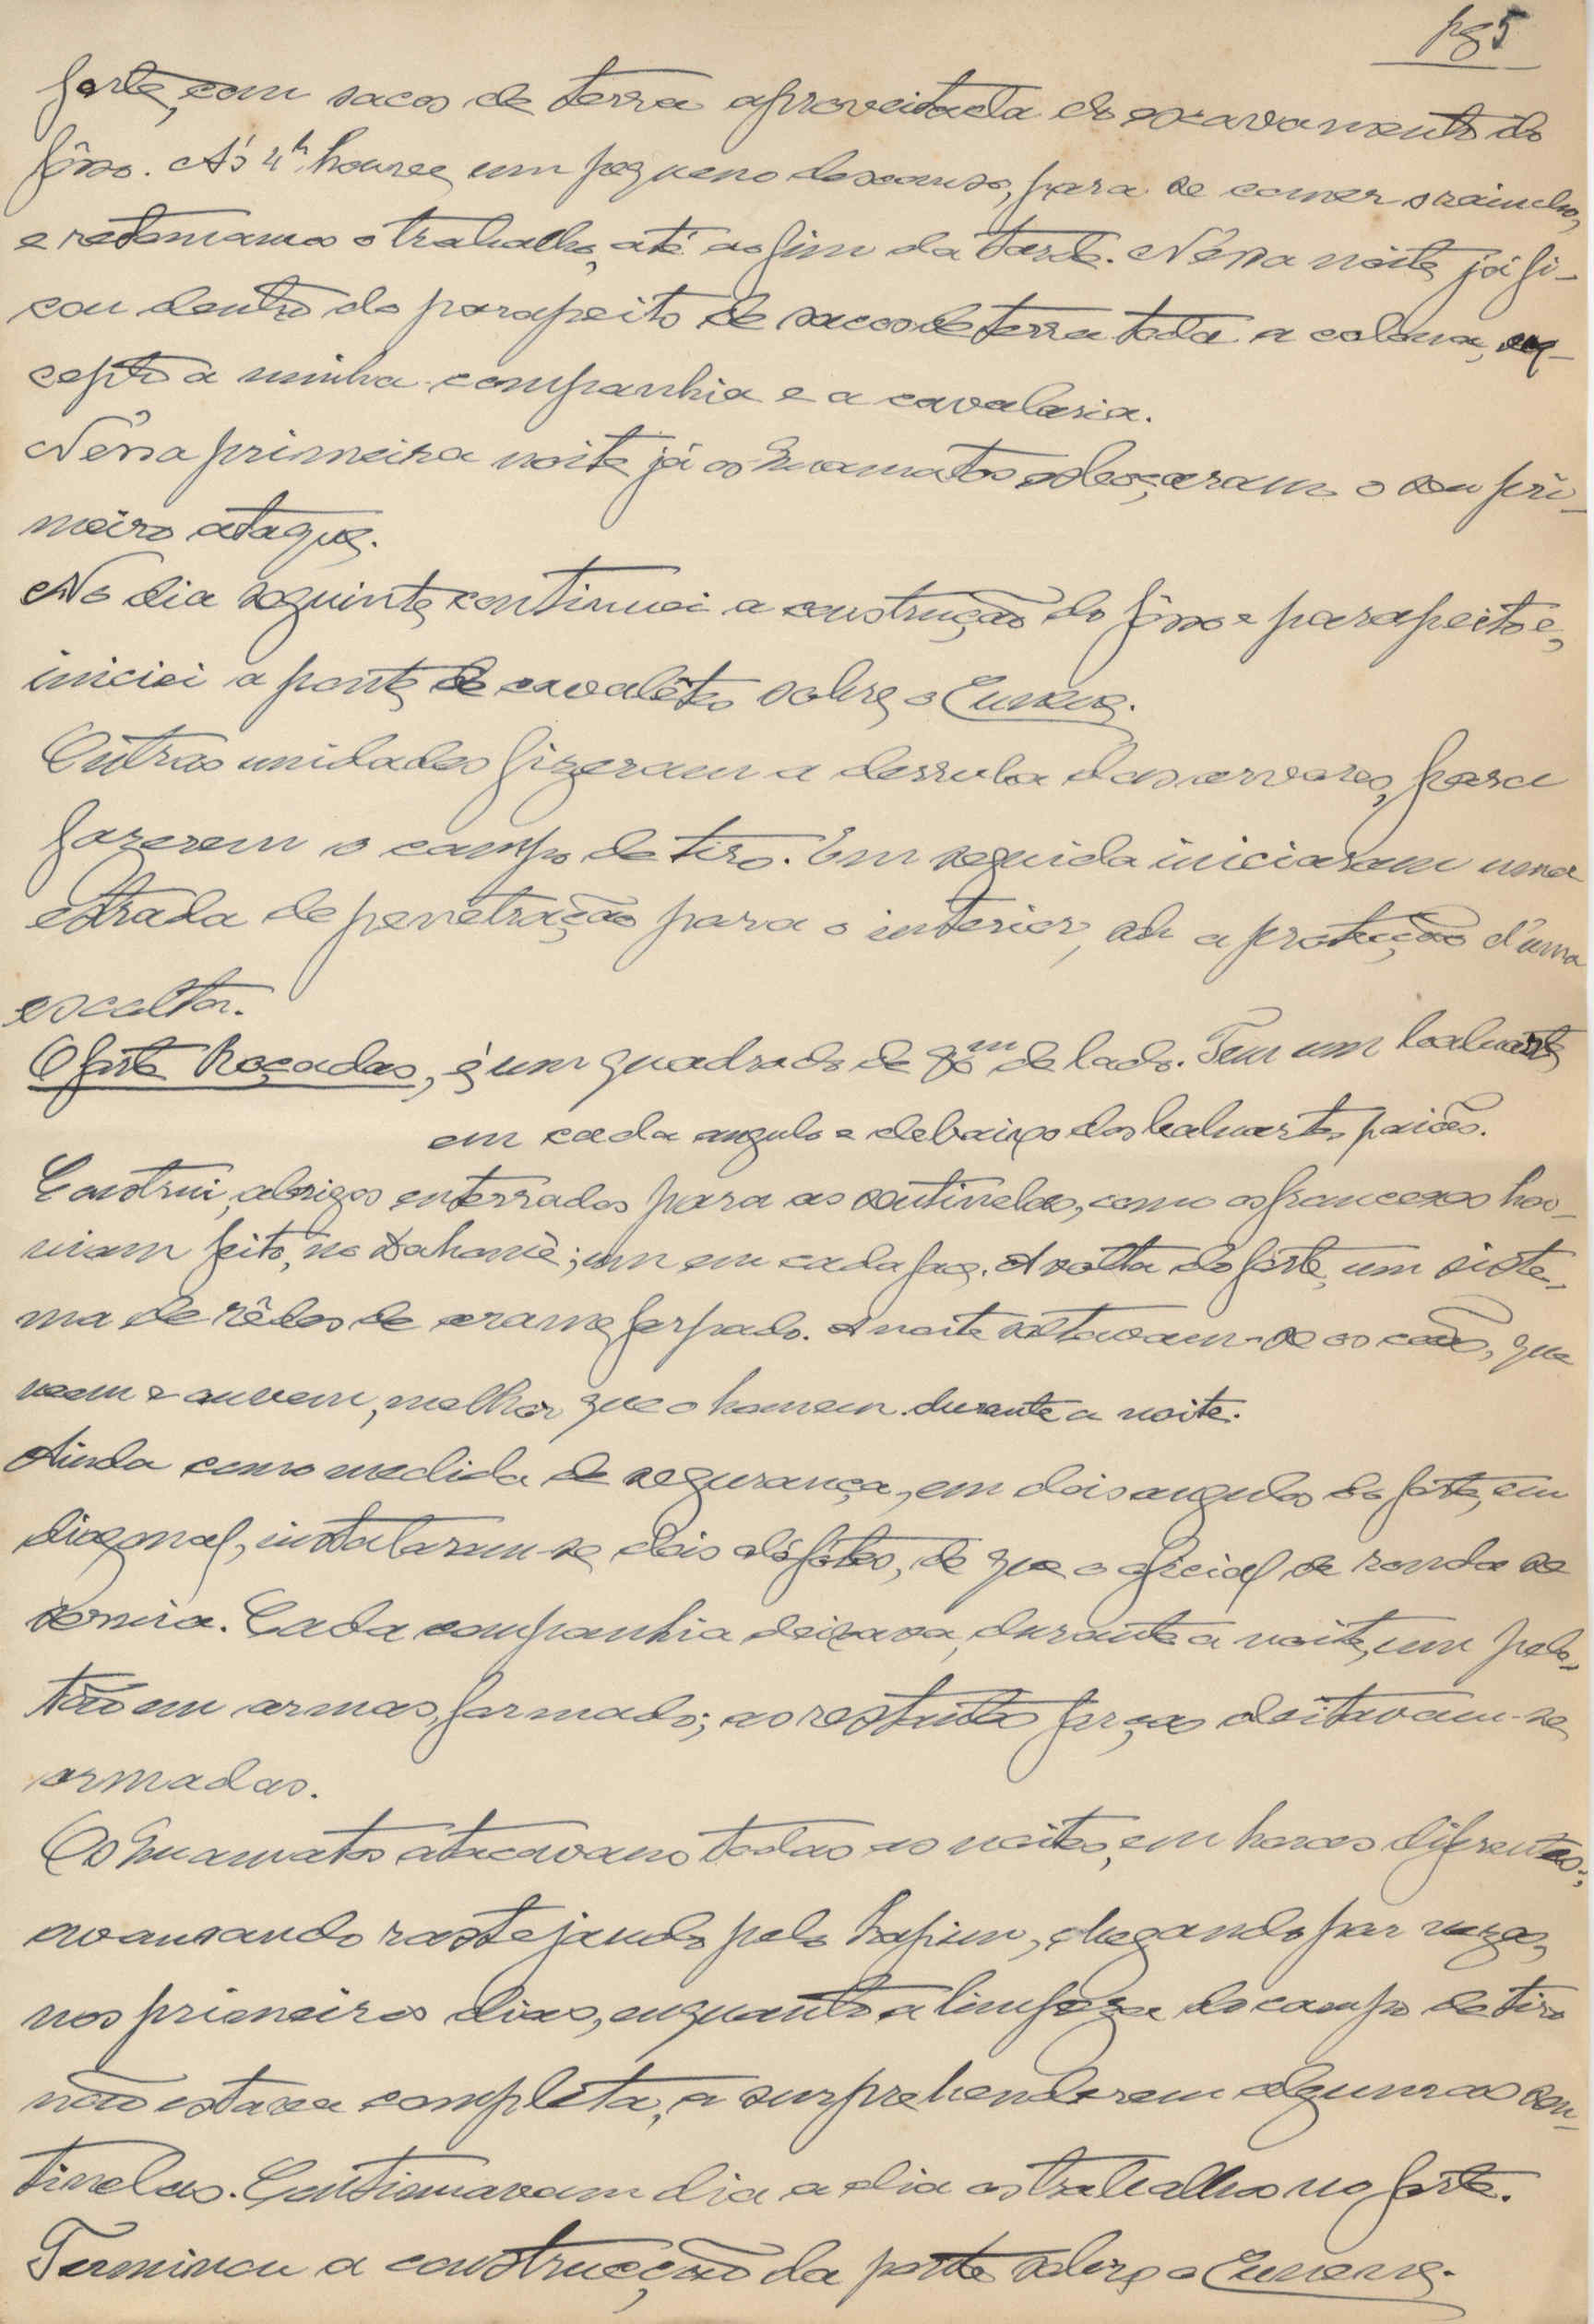 pg 5
forte, com sacos de terra aproveitada do excavamento do
fôsso. Ás 4h houve, um pequeno descanso, para se comer o rancho,
e retomamos o trabalho, até ao fim da tarde. N'essa noite, já fi-
cou dentro do parapeito de sacos de terra toda a coluna, ex-
cepto a minha companhia e a cavalaria.
N'essa primeira noite já os Cuamatos esboçaram o seu pri-
meiro ataque.
No dia seguinte, continuei a construção do fôsso e parapeito e,
iniciei a ponte de cavalêtes sobre o Cunene.
Outras unidades fizeram a derruba das arvores, para
fazerem o campo de tiro. Em seguida iniciaram uma
estrada de penetração para o interior, sob a proteção d'uma
escolta.
O forte Roçadas, é um quadrado de m de lado. Tem um baluarte
em cada angulo e debaixo dos baluartes paióes.
Construi, abrigos enterrados para as sentinelas, como os francezes ha-
viam feito, no Dahomé; um em cada face. A volta do forte, um siste-
ma de rêdes de arame farpado. A noite soltavam-se os cães, que
veem e ouvem, melhor que o homem durante a noite.
Ainda como medida de segurança, em dois angulos do forte, em
diagonal, instalaram-se dois olofótes, de que o oficial de ronda se
servia. Cada companhia deixava, durante a noite, um pelo-
tão em armas, formado; as restantes forças deitavam-se
armadas.
Os Cuamatos atacavam todas as noites, em horas diferentes;
avansando rastejando pelo kapim, chegando por vezes,
nos primeiros dias, enquanto a limpeza do campo de tiro
não estava completa, a surprehenderem algumas sen-
tinelas. Continuavam dia a dia os trabalhos no forte.
Terminou a construcção da ponte sobre o Cunene.